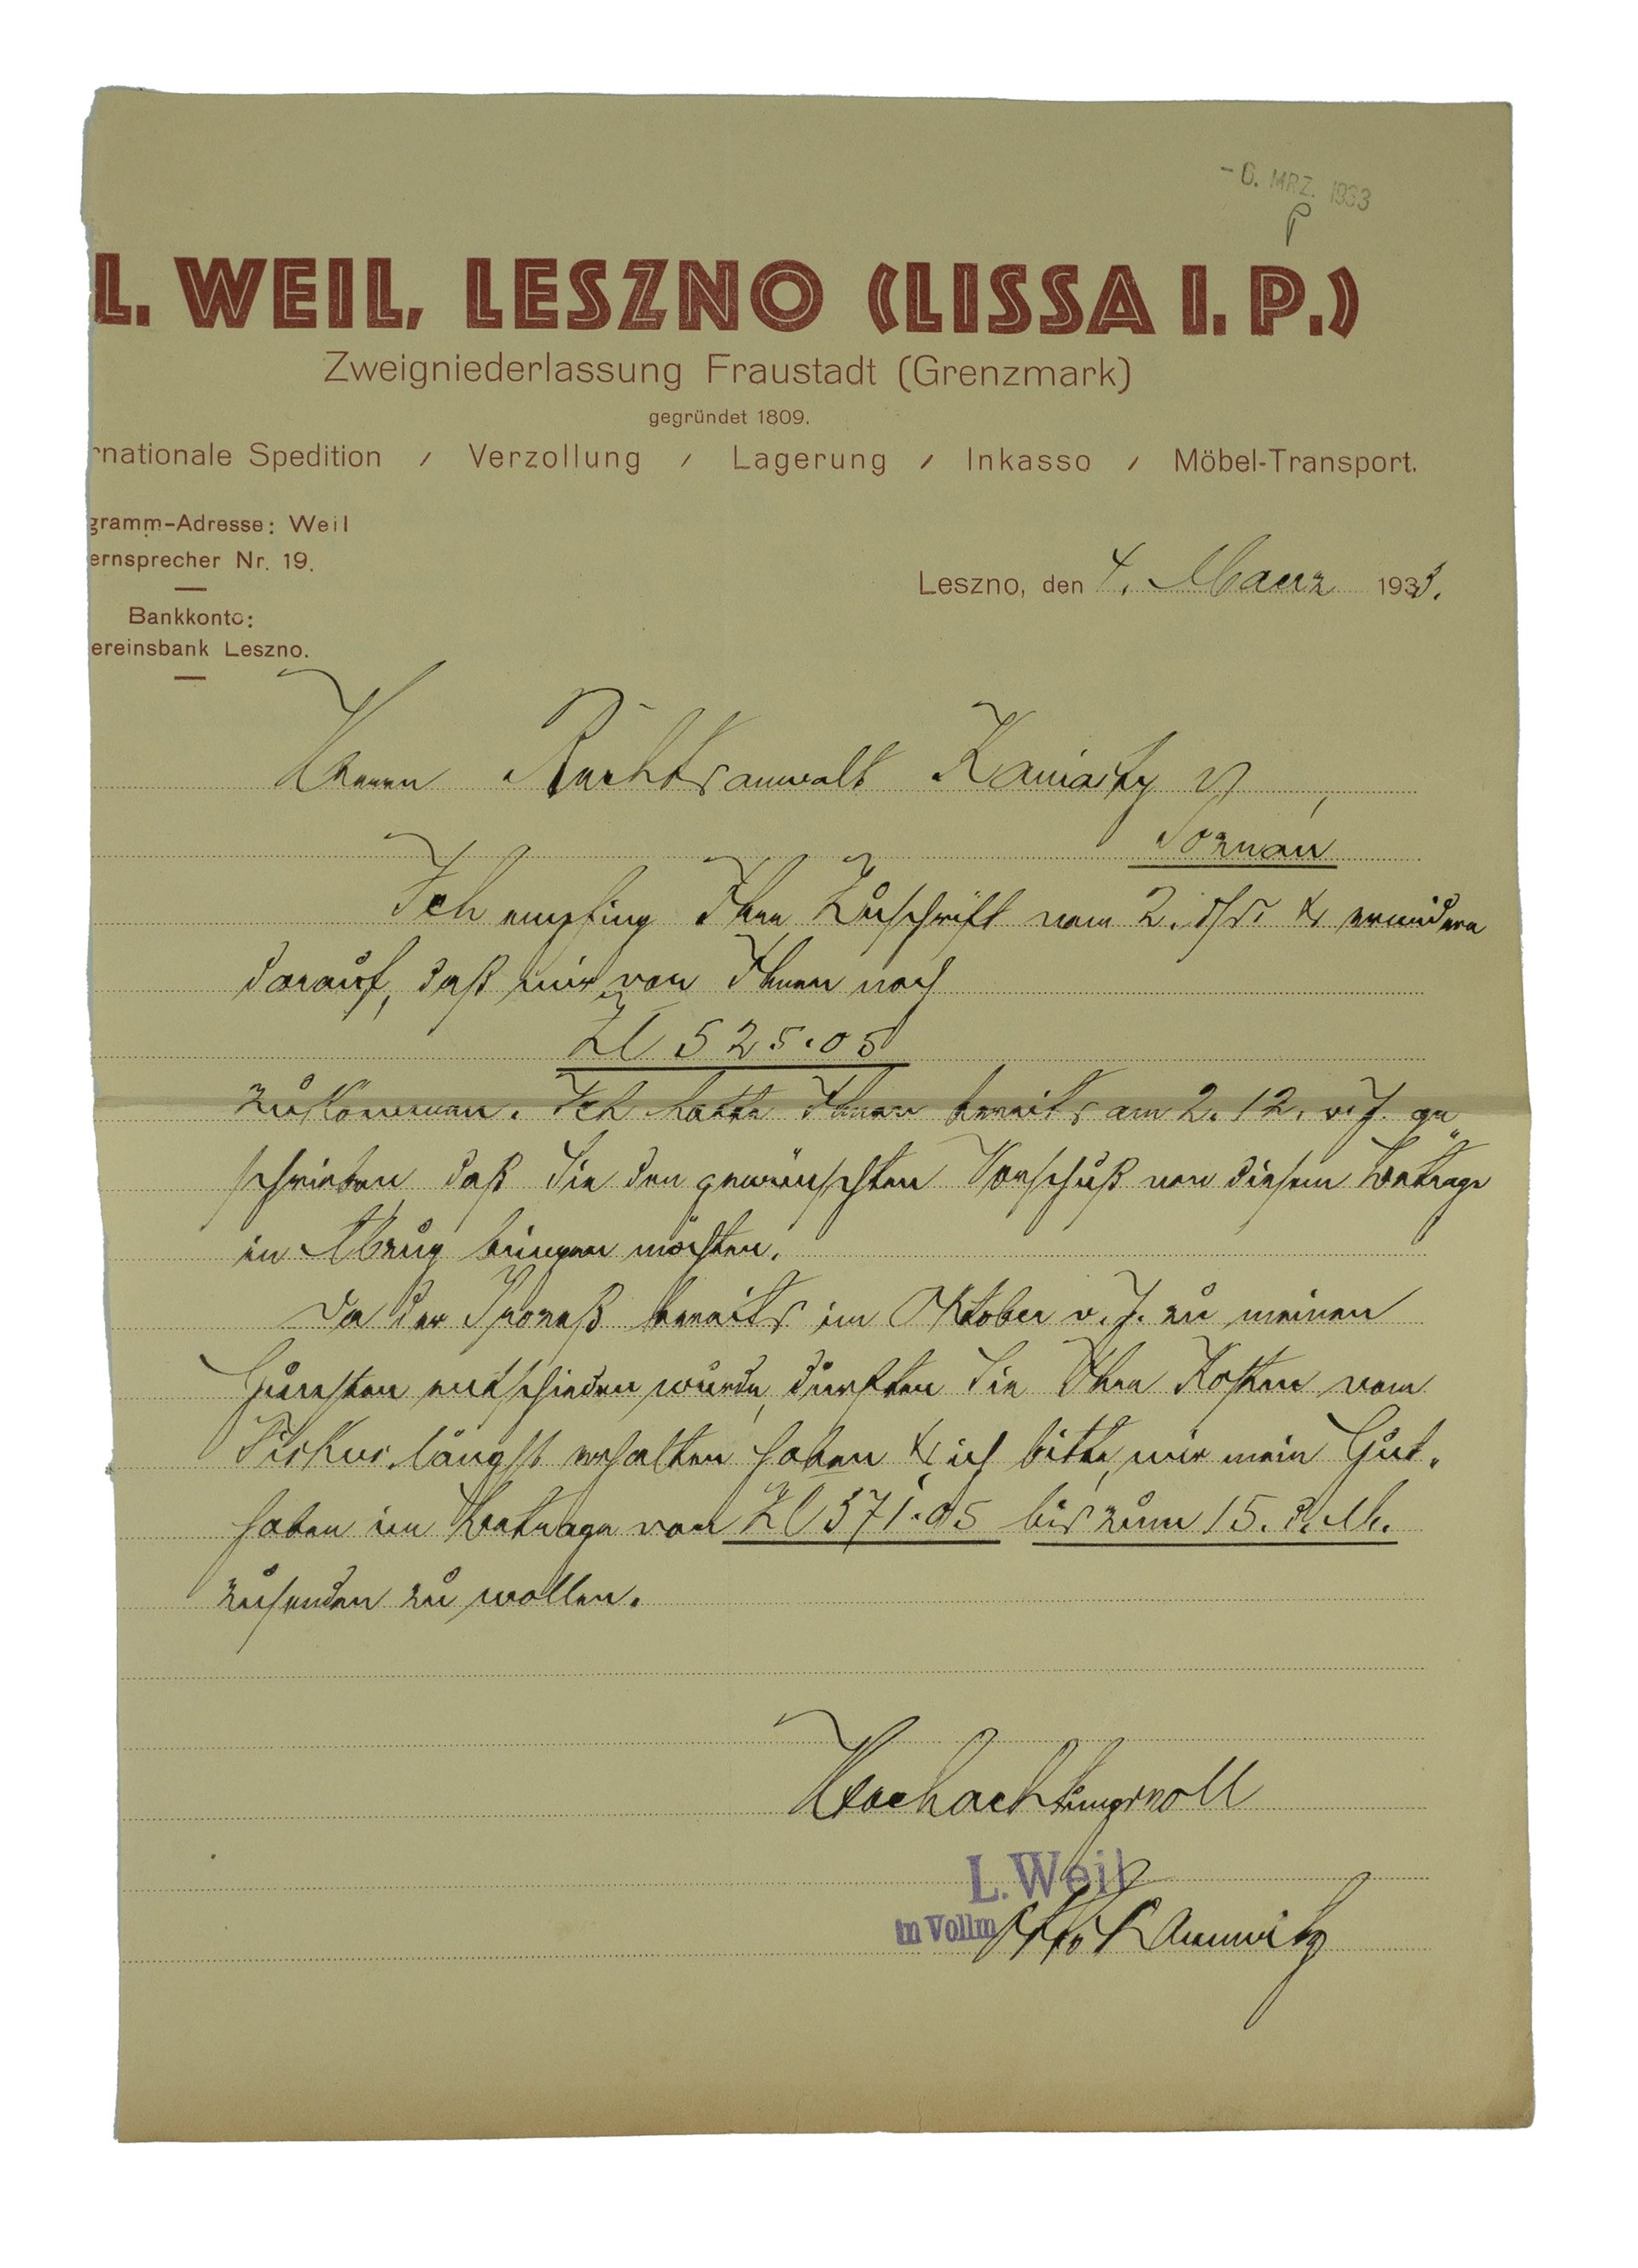 - 6. MRZ. 1933
L. WEIL, LESZNO (LISSA I. P.)
Zweigniederlassung Fraustadt (Grenzmark)
gegründet 1809.
rnationale Spedition / Verzollung / Lagerung / Inkasso / Möbel-Transport.
gramm-Adresse: Weil
ernsprecher Nr. 19.
Bankkonto:
ereinsbank Leszno.
Leszno, den 4. Maerz 1933.
Herrn Rechtsanwalt
Poznan
Ich empfing Ihre Zuschrift vom 2. ds. & erwidere
darauf, daß mir von Ihnen noch
Zl 525.05
zukommen. Ich hatte Ihnen bereits am 2. 12. v. J. ge„
schrieben daß Sie den gewünschten Vorschuß von diesem Betrage
in Abzug bringen möchten.
Da der Prozeß bereits im Oktober v. J. zu meinen
Gunsten entschieden wurde, dürften Sie Ihre Kosten vom
Fiskus längst erhalten haben & ich bitte, mir mein Gut-
haben im Betrage von Zl 371.05 bis zum 15. d. M.
zusenden zu wollen.
Hochachtungsvoll
L. Weil
in Vollm